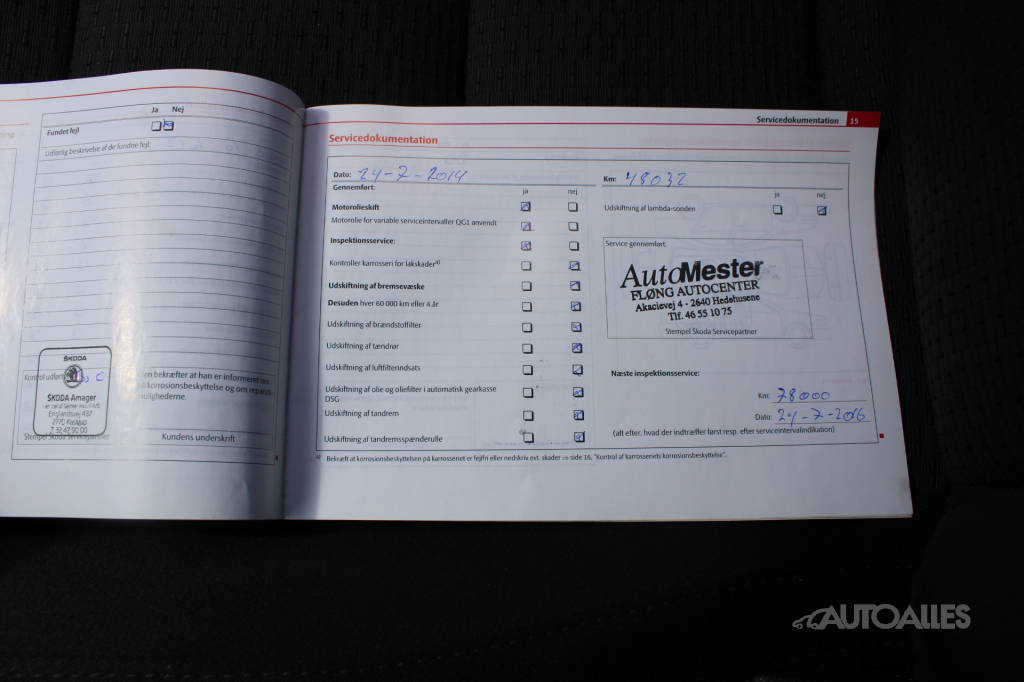 Ja Nej
Fundet fejl
Udførlig beskrivelse af de fundne fejl:
ŠKODA
Kontrol udført
ŠKODA Amager
Englandsvej 437
2770 Kastrup
Stempel Škoda Servicepartner
den bekræfter at han er informeret om
på korrosionsbeskyttelse og om repara
mulighederne.
Kundens underskrift
Servicedokumentation 15
Servicedokumentation
Dato: 24-7-2014
Gennemført: ja nej
Motorolieskift
Motorolie for variable serviceintervaller QG1 anvendt
Inspektionsservice:
Kontroller karrosseri for lakskader a)
Udskiftning af bremsevæske
Desuden hver 60 000 km eller 4 år
Udskiftning af brændstoffilter
Udskiftning af tændrør
Udskiftning af luftfilterindsats
Udskiftning af olie og oliefilter i automatisk gearkasse
DSG
Udskiftning af tandrem
Udskiftning af tandremsspænderulle
Km: 48032
ja nej
Udskiftning af lambda-sonden
Service gennemført:
AutoMester
FLØNG AUTOCENTER
Akacievej 4 - 2640 Hedehusene
Tlf. 46 55 10 75
Stempel Škoda Servicepartner
Næste inspektionsservice:
Km: 78000
Dato: 24-7-2016
(alt efter, hvad der indtræffer først resp. efter serviceintervalindikation)
a) Bekræft at korrosionsbeskyttelsen på karrosseriet er fejlfri eller nedskriv evt. skader ⇒ side 16, "Kontrol af karrosseriets korrosionsbeskyttelse".
AUTOALLES